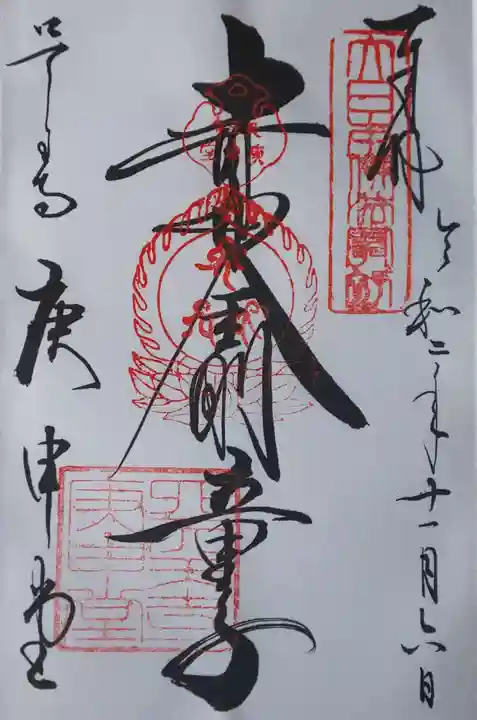 奉拝
令和二年十一月六日
青面金剛童子
四天王寺
庚申堂
庚申堂